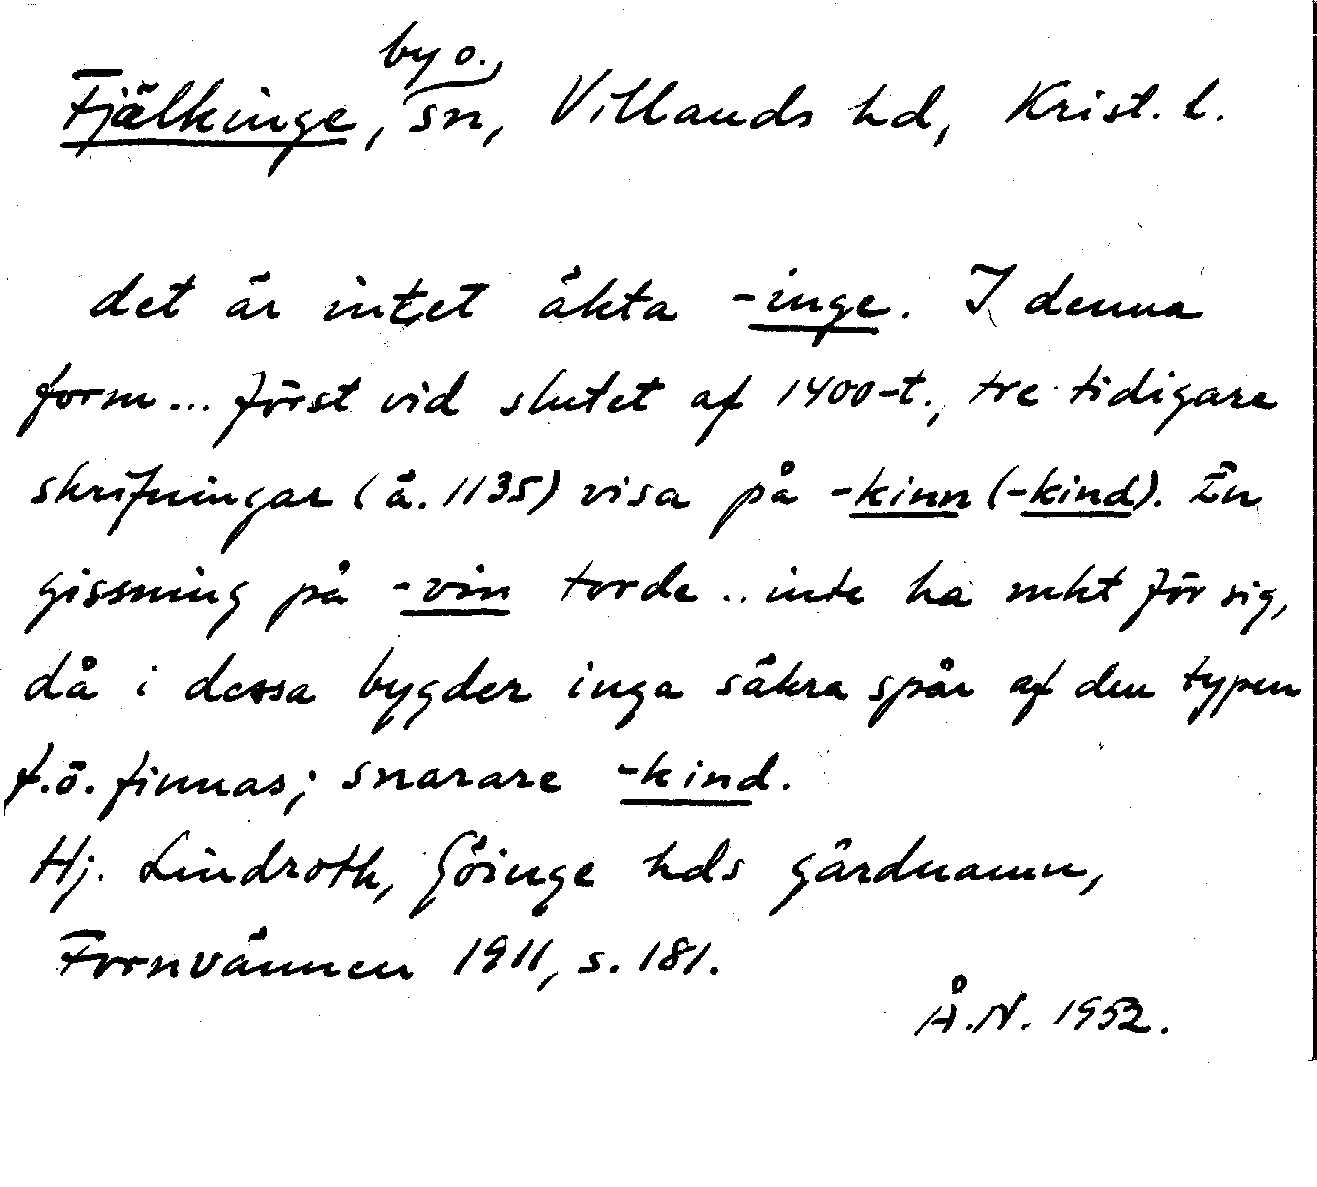 Fjälkinge, by o. sn, Villands hd, Krist. l.
det är intet äkta -inge. I denna
form... först vid slutet af 1400-t., tre tidigare
skrifningar (ä. 1135) visa på -kinn (-kind). En
gissning på -vin torde .. inte ha mkt för sig,
då i dessa bygder inga säkra spår af den typen
f.ö. finnas; snarare -kind.
Hj. Lindroth, Göinge hds gårdnamn,
Fornvännen 1911, s. 181.
Å.N. 1952.